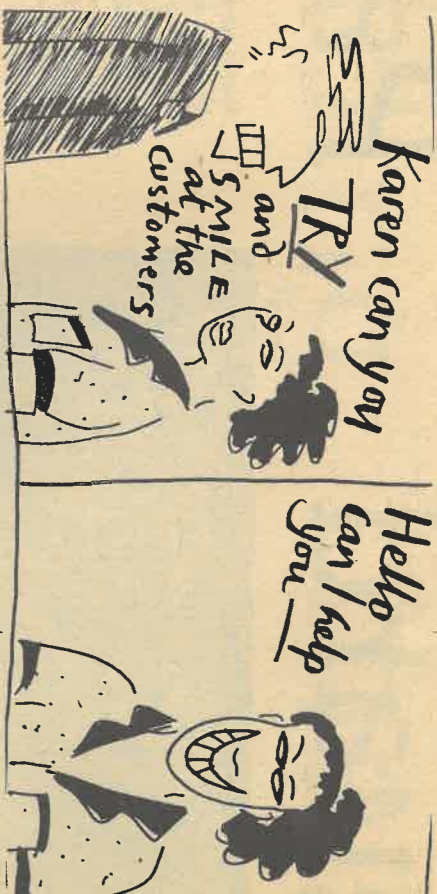 Karen can you
TRY
and
SMILE
at the
customers
Hello
can I help
you